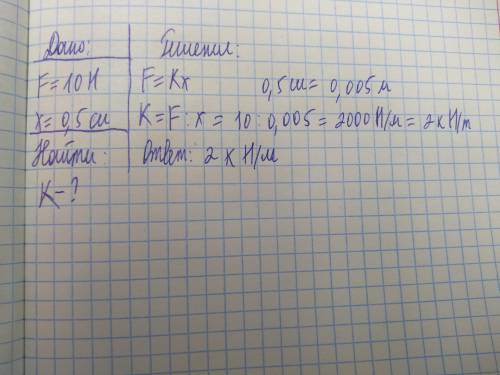 Дано:
F=10Н
x=0,5см
Найти:
K-?
Решение:
F=Kx 0,5см= 0,005м
K=F:x = 10:0,005= 2000Н/м= 2кН/м
Ответ: 2кН/м